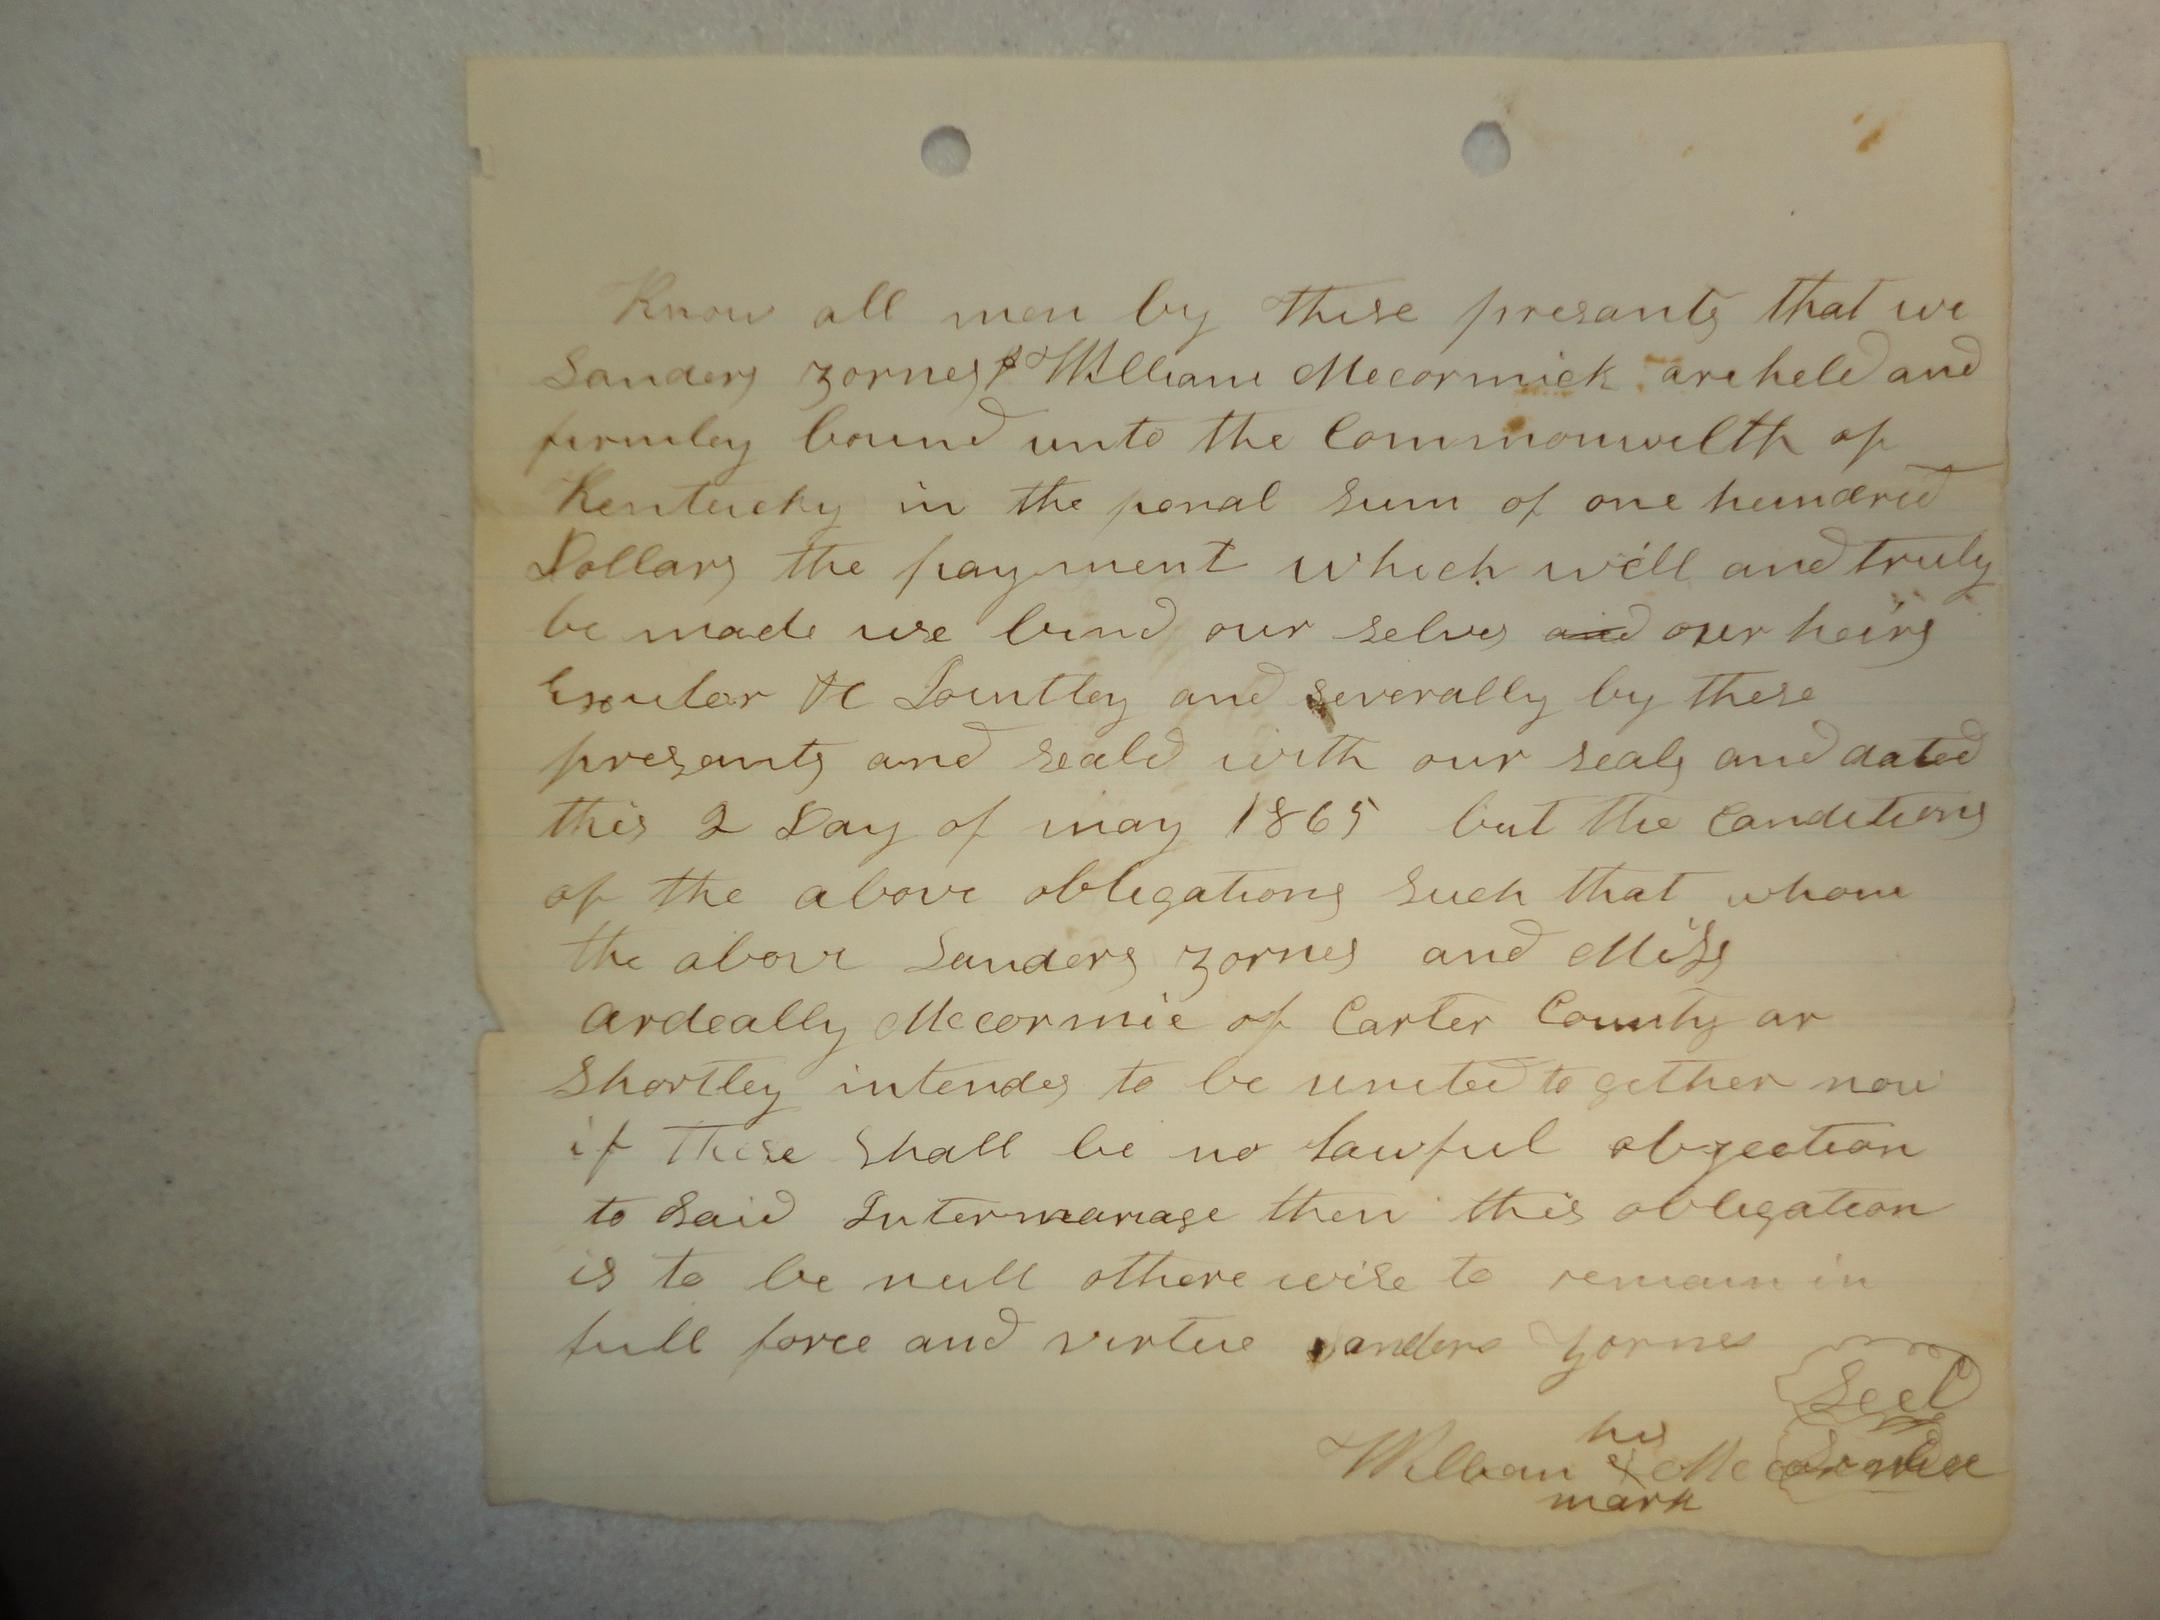 Know all men by these presants that we
Sanders zornes & William Mccormick are held and
firmley bound unto the Commonwelth of
Kentucky in the penal sum of one hundred
Dollars the payment which well and truly
be made we bind our selves and our heirs
&c Jointley and severally by these
presants and seald with our seals and dated
this 2 Day of may 1865 but the Canditions
of the above obligations such that whom
the above Sanders zornes and Miss
ardeally Mccormic of Carter County ar
Shortley intendes to be united to gether now
if these Shall be no lawful objection
to said Intermarage then this obligation
is to be null othere wise to remain in
full force and virtue Sanders Zornes
Seel
his
William X Mc
mark